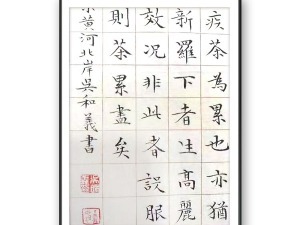 疾茶為累也亦猶
新羅下者生高麗
效況非此者設服
則茶累盡矣
黃河北岸吳和義書